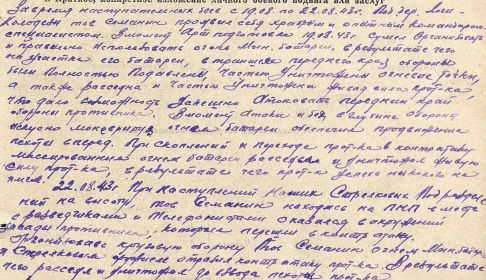 Краткое изложение личного боевого подвига или заслуг
За время наступательных боев с 19.08. по 22.08.43г.
тов Семанин проявил себя храбрым и опытным командиром
специалистом. В момент Арт подготовки 19.08.43г. Сумел Организовать
и правильно Использовать огонь Мин. батареи, в результате чего
на участке его батареи, в траншеях переднего края обороны
были Полностью Подавлены, Частью Уничтожены огневые точки,
а также рассеяна и частью Уничтожена живая сила прот-ка
что дало возможность Успешно Атаковать передний край
обороны противника. В момент атаки и боя в глубине обороны
искусно маневрируя огнем батареи обеспечил продвижение
пехоты вперед. При скоплении и переходе прот-ка в контратаку
Массированным огнем батареи рассеивал и уничтожал живую
силу прот-ка, в результате чего прот-к успеха
22.08.43г. При наступлении Наших Стрелковых Подразделе-
ний на высоту, тов Семанин находясь на ПНП вместе
с разведчиками и Телефонистами оказался в окружении
противника, которые перешли в контратаку.
Организовав круговую оборону Тов Семанин огнем Мин. батареи
и Стрелковым оружием отразил контратаку прот-ка. В результате
чего рассеял и уничтожил до взвода пехоты прот-ка